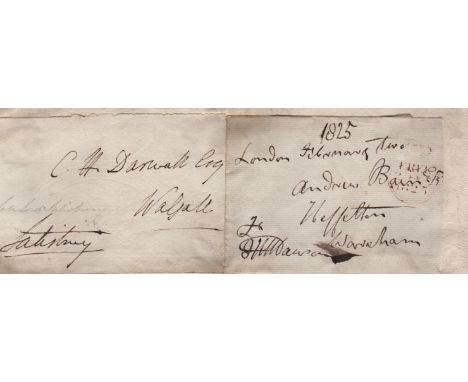 C H Darwall Esq
Walsall
Salisbury
1825
London February Two
Andrew Bain Esq
Heffelton
Wareham
Fr
FREE